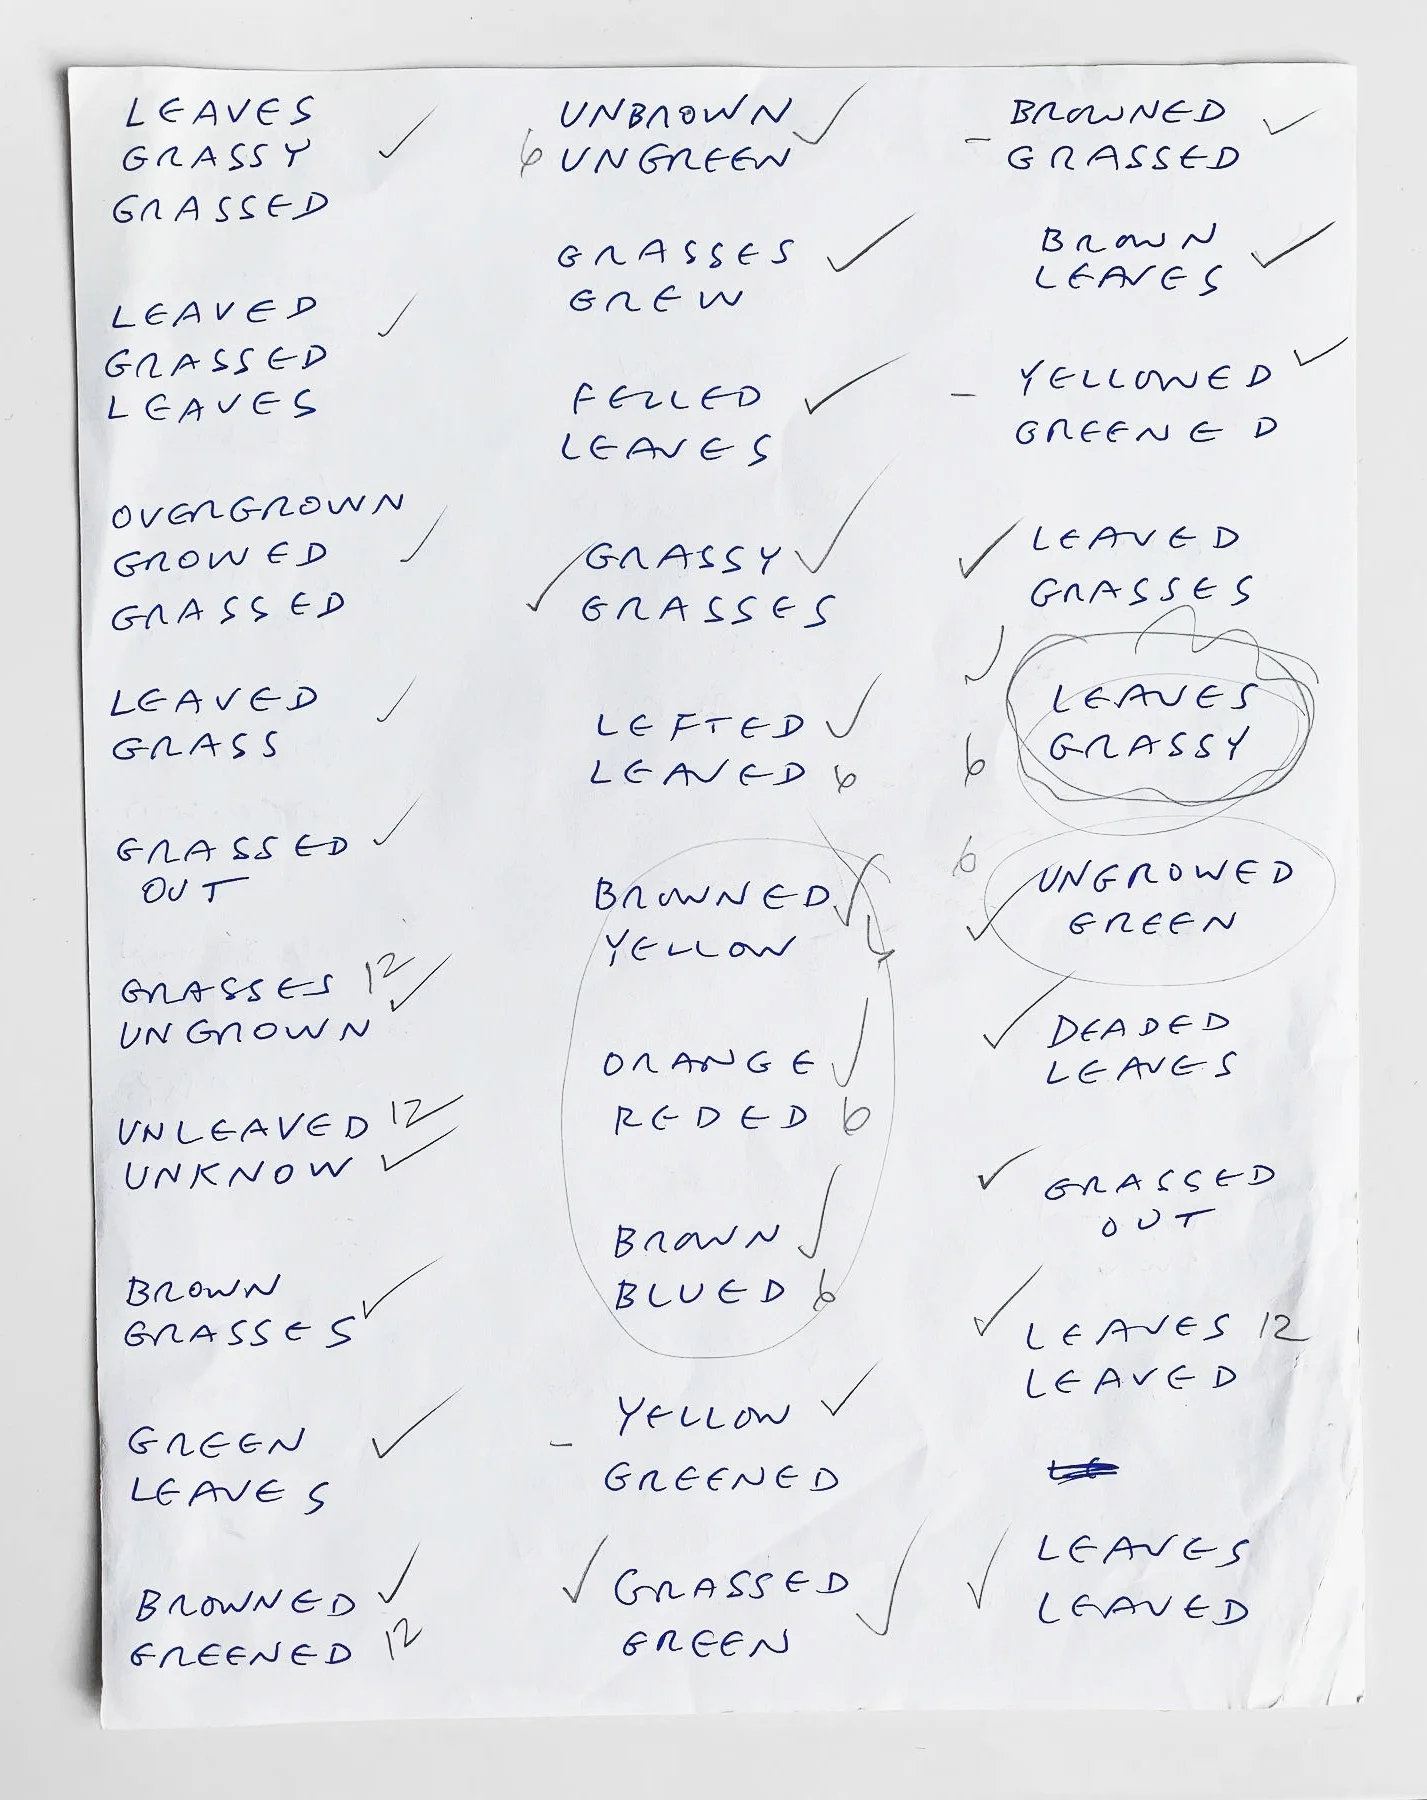 LEAVES
GRASSY
GRASSED
LEAVED
GRASSED
LEAVES
OVERGROWN
GROWED
GRASSED
LEAVED
GRASS
GRASSED
OUT
GRASSES 12
UNGROWN
UNLEAVED 12
UNKNOW
BROWN
GRASSES
GREEN
LEAVES
BROWNED
GREENED 12
UNBROWN
6 UNGREEN
GRASSES
GREW
FELLED
LEAVES
GRASSY
GRASSES
LEFTED
LEAVED 6
BROWNED
YELLOW
ORANGE
REDED 6
BROWN
BLUED 6
YELLOW
GREENED
GRASSED
GREEN
BROWNED
GRASSED
BROWN
LEAVES
YELLOWED
GREENED
LEAVED
GRASSES
LEAVES
6 GRASSY
6 UNGROWED
GREEN
DEADED
LEAVES
GRASSED
OUT
LEAVES 12
LEAVED
LEAVES
LEAVED